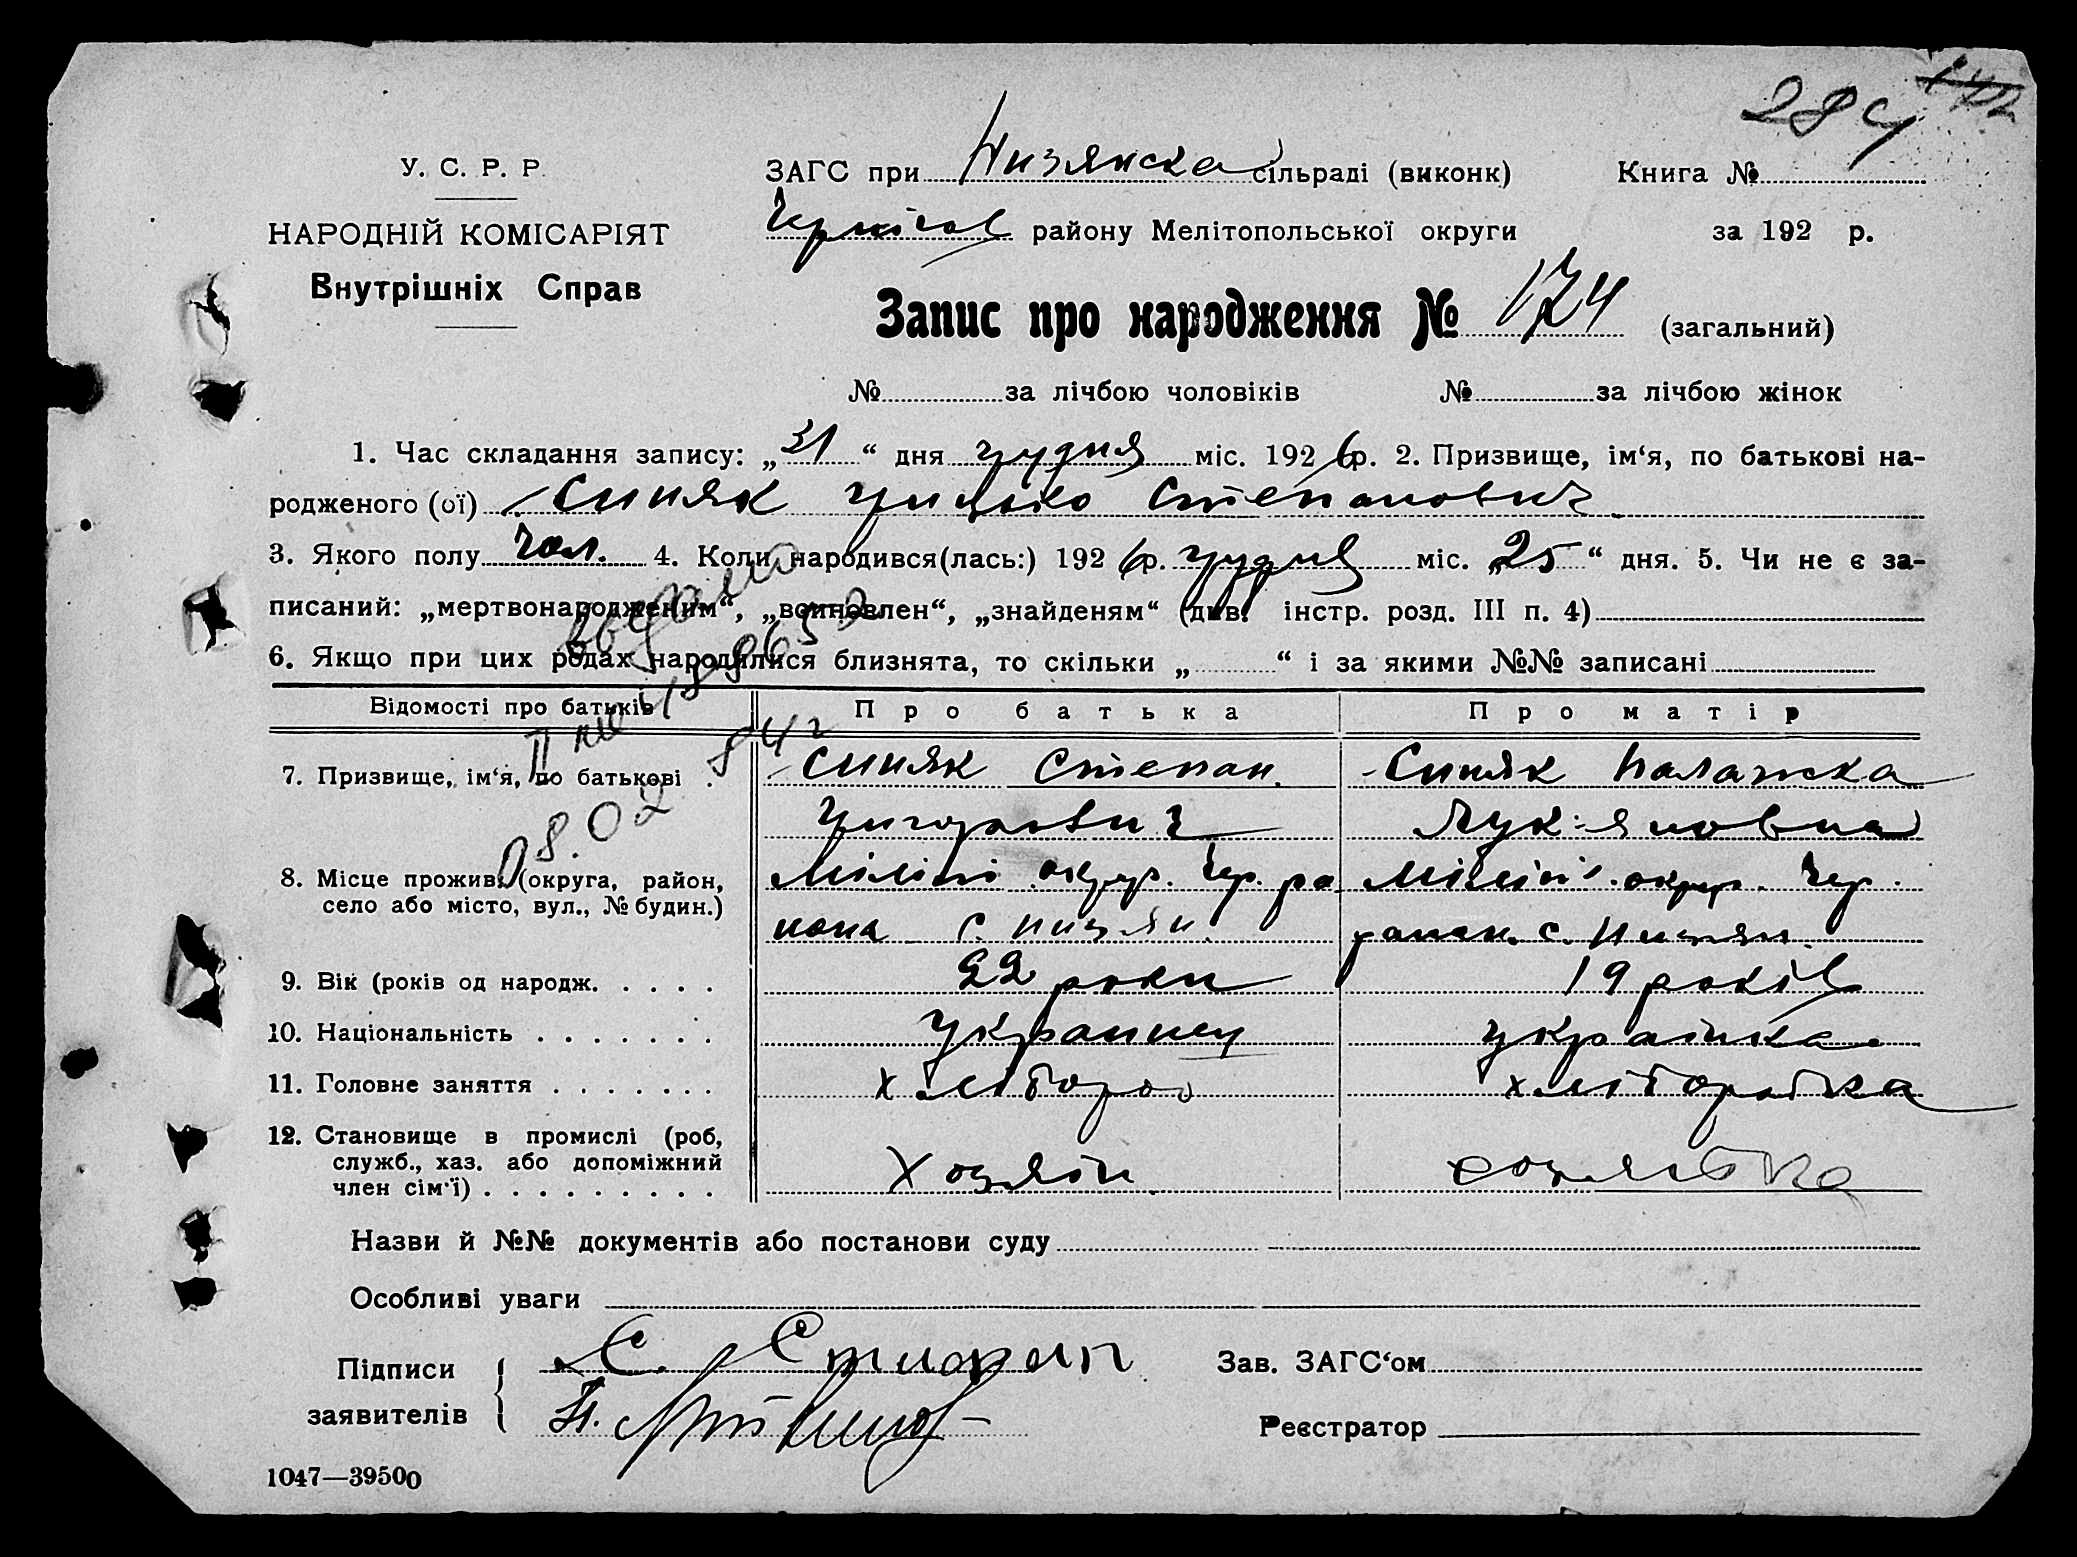 284
У. С. Р. Р.
ЗАГС при Низянска сільраді (виконк) Книга №
НАРОДНІЙ КОМІСАРІЯТ
району Мелітопольської округи за 192 р.
Внутрішніх Справ
Запис про народження № 174 (загальний)
№ за лічбою чоловіків № за лічбою жінок
1. Час складання запису: „31“ дня грудня міс. 1926 р. 2. Призвище, ім‘я, по батькові на-
родженого (ої) Синяк Грицько Степанович
3. Якого полу чол. 4. Коли народився(лась:) 1926 р. грудня міс. „25“ дня. 5. Чи не є за-
писаний: „мертвонародженим“, „воиновлен“, „знайденям“ (див. інстр. розд. III п. 4)
6. Якщо при цих родах народилися близнята, то скільки „ “ і за якими №№ записані
видано
84 г
08.02
Відомості про батьків Про батька Про матір
7. Призвище, ім‘я, по батькові Синяк Степан Синяк Палажка
Григорович Лук‘яновна
8. Місце прожив. (округа, район, Міліт. округ. Чер. ра Міліт. округ. Чер.
село або місто, вул., № будин.) йона с. Низян. район. с. Низян.
9. Вік (років од народж. 22 роки 19 років
10. Національність Украинец українка
11. Головне заняття хлібороб хліборобка
12. Становище в промислі (роб, служб., хаз. або допоміжний член сім‘ї) Хозяін хозяйка
Назви й №№ документів або постанови суду
Особливі уваги
Підписи заявителів С. Зав. ЗАГС‘ом
Реєстратор
1047—39500